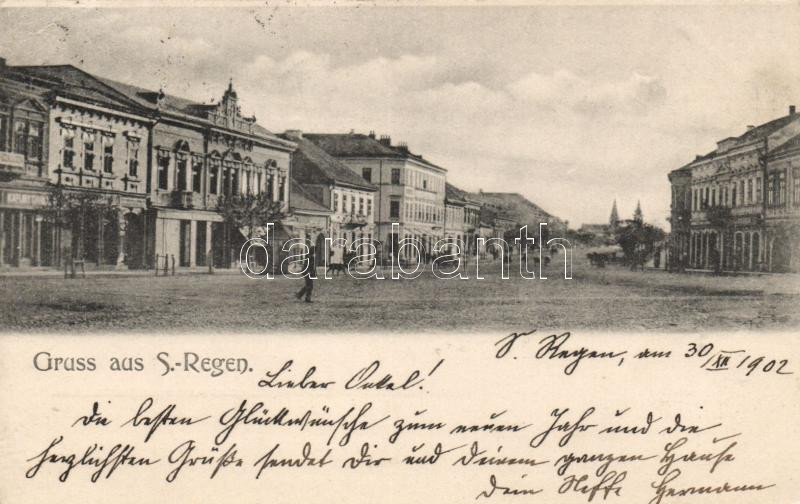 darabanth
Gruss aus S.-Regen.
S. Regen, am 30/XII 1902
Lieber Onkel!
Die besten Glückwünsche zum neuen Jahr und die
herzlichsten Grüße sendet Dir und Deinem ganzen Hause
Dein Neffe Hermann